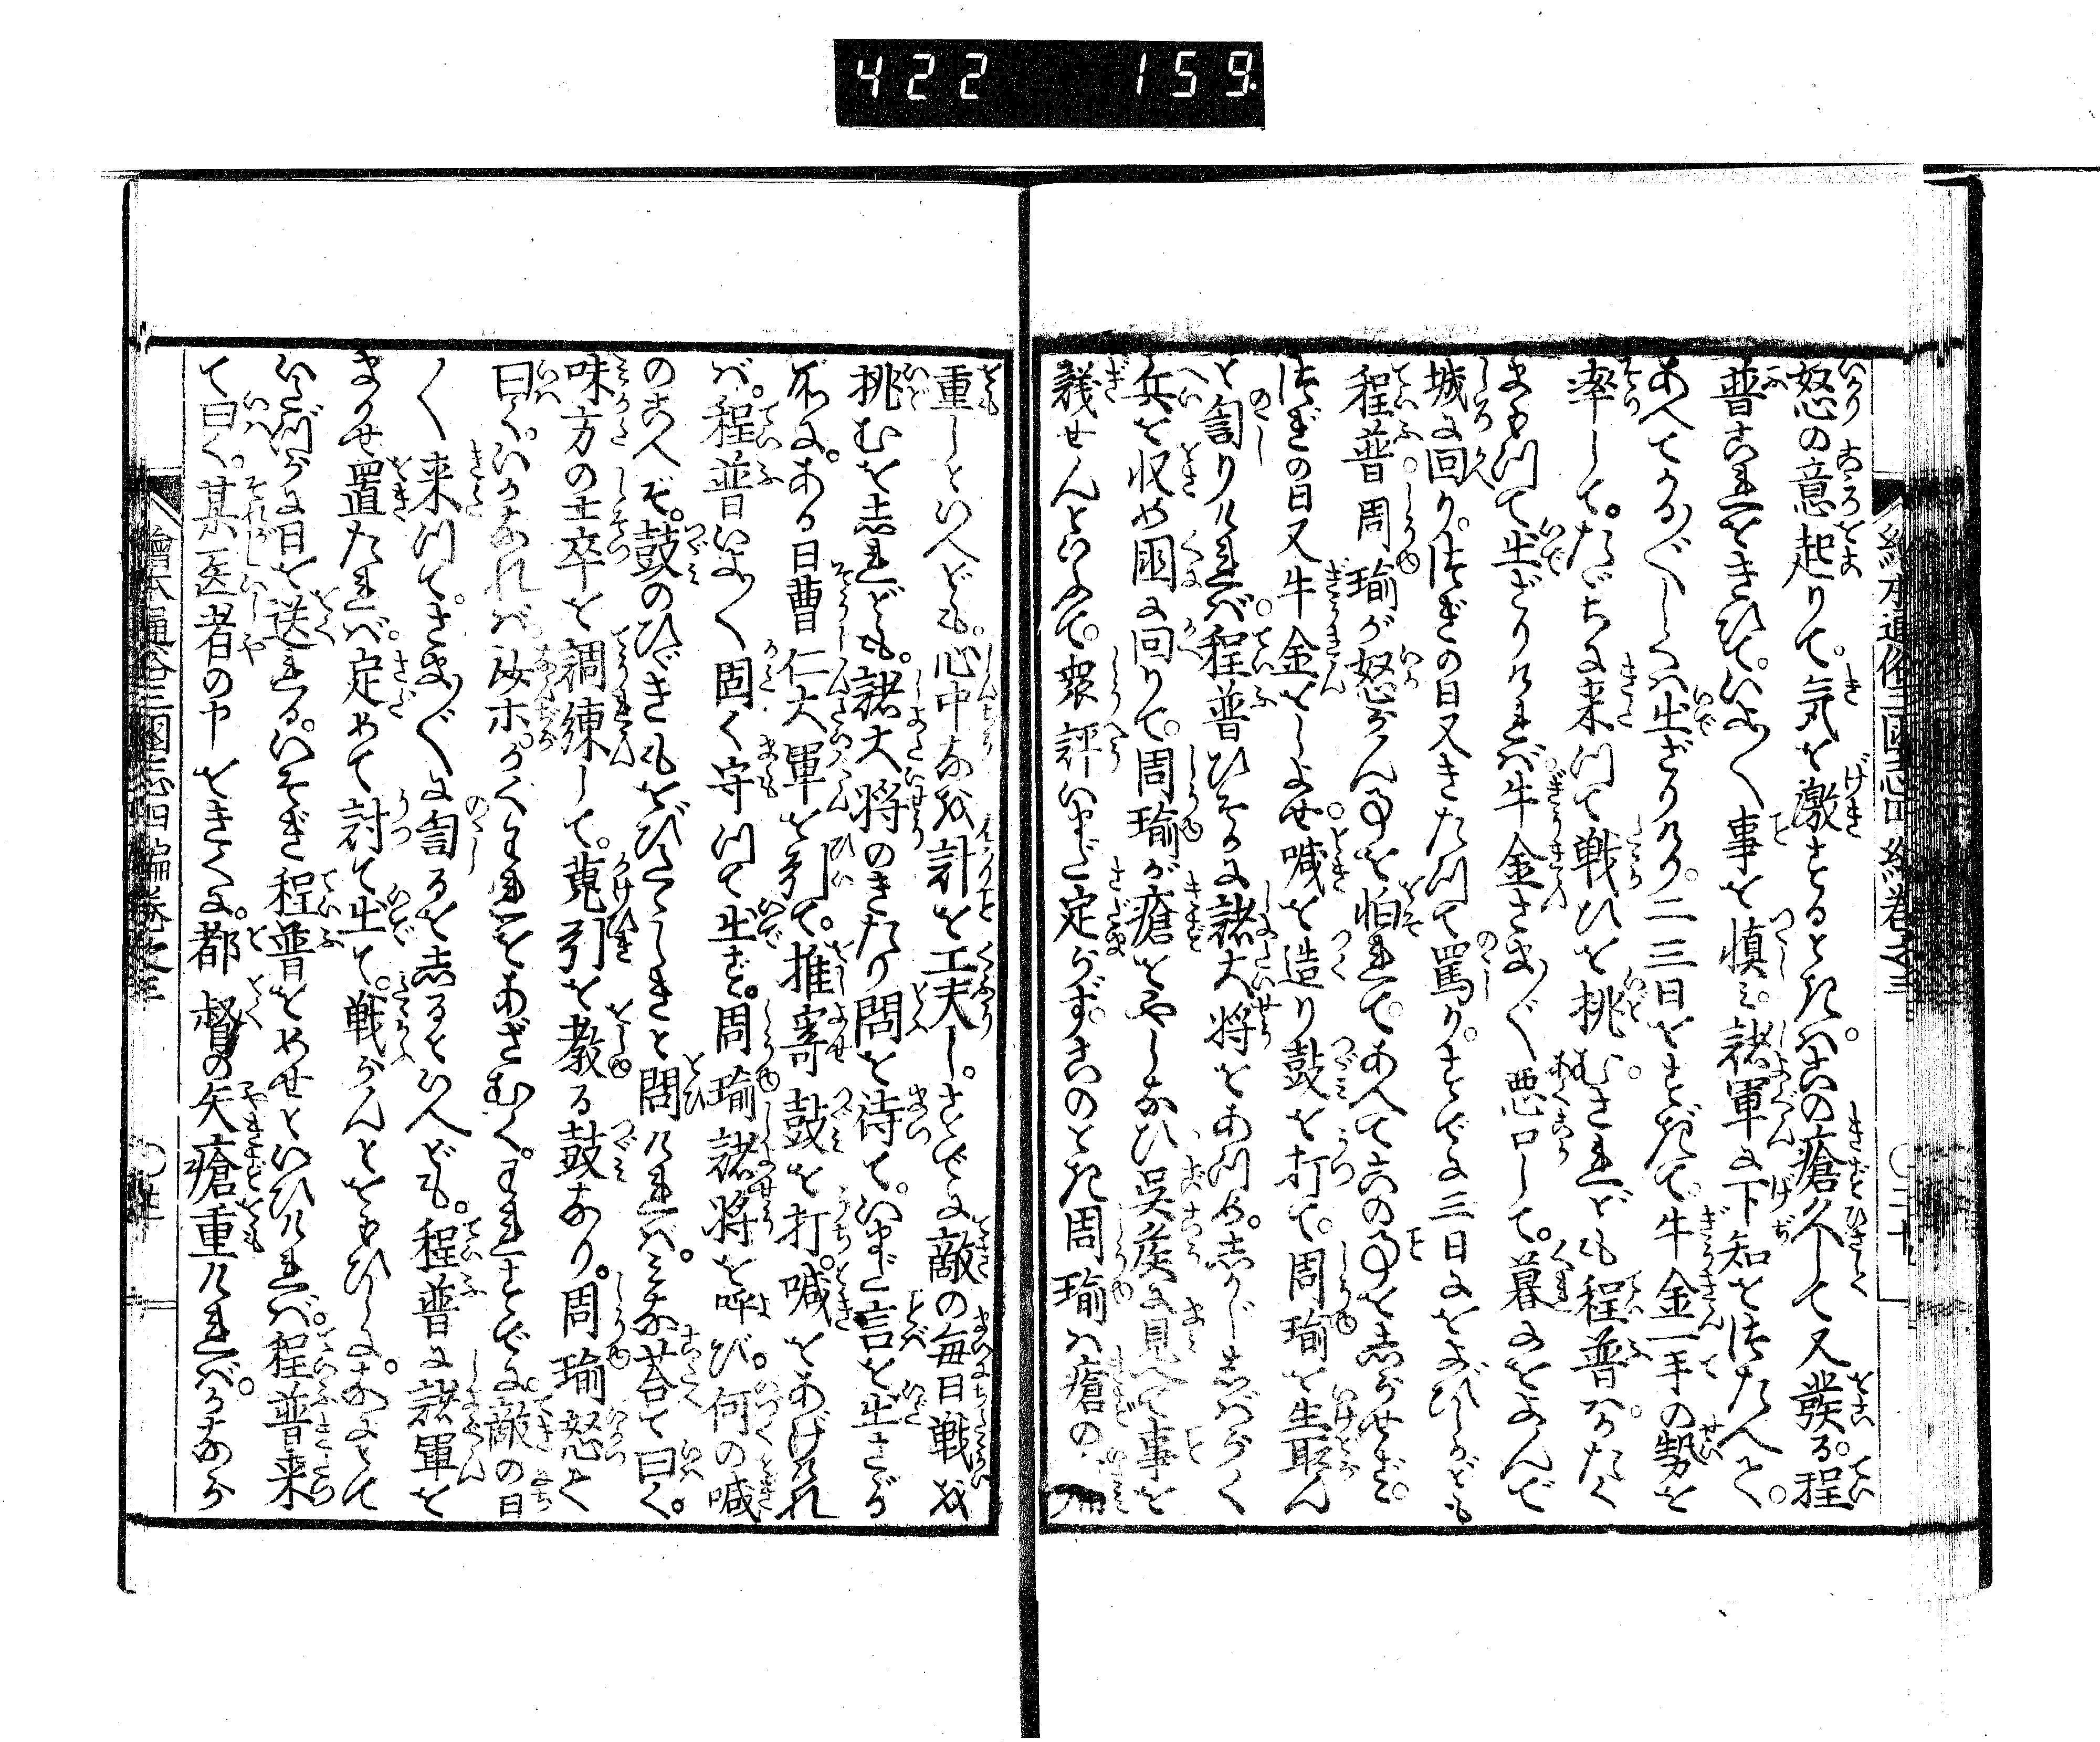 422 159
怒の意起りて。気を激するとたハ。この瘡久して又發る。程
普これをきひて。いよ〱事を慎ミ。諸軍に下知をつたへて。
あへてかろ〲しくハ出ざりけり。二三日をすぎて。牛金一手の勢を
率して。たゞちに来つて戦ひを挑む。されども程普かたく
まもつて出ざりけれバ牛金さま〲悪口して。暮におよんで
城に回り。つぎの日又きたつて罵り。すでに三日におよびしかども
程普周瑜が怒らん事を怕れて。あへてこの事を知らせず。
つぎの日又牛金をしよせ喊を造り鼓を打て。周瑜を生取ん
と訇りけれバ。程普ひそかに諸大将をあつめ。しかじしばらく
兵を収め国に回りて。周瑜が瘡をやしなひ呉侯に見へて事を
議せんといふて。衆評いまだ定らず。このとき周瑜ハ瘡の
重しといへども。心中なを計を工夫し。すでに敵の毎日戦を
挑むを志れども。諸大将のきたり問を待て。いまだ言を出さゞり
ある日曹仁大軍を引て。推寄鼓を打。喊をあげけれ
バ。程普いよ〱固く守つて出ず。周瑜諸将を呼び。何の喊
のこへぞ。鼓のひゞきもをびたゝしきと問けれバ。ミな荅て曰く。
味方の士卒を調練して。蒐引を教る鼓なり。周瑜怒て
曰く。いかなれバ汝ホ。かくわれをあざむく。われすでに敵の日
〱来つて。さま〲に訇るを志るといへども。程普に諸軍を
まかせ置たれバ。定めて討て出て。戦ハんとをもひしに。なにとて
いたづらに日を送れる。いそぎ程普をめせといひけれバ。程普来
て曰く。某医者の申をきくに。都督の矢瘡重けれバ。かならず
繪本通俗三國志四編巻之三